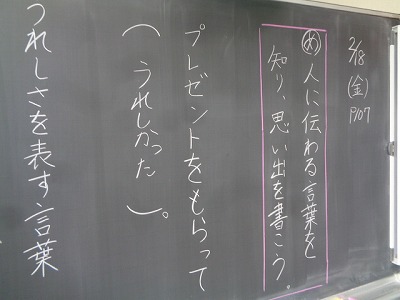 2/18
(金)
P107
め 人に伝わる言葉を
知り、思い出を書こう。
プレゼントをもらって
(うれしかった)。
うれしさを表す言葉